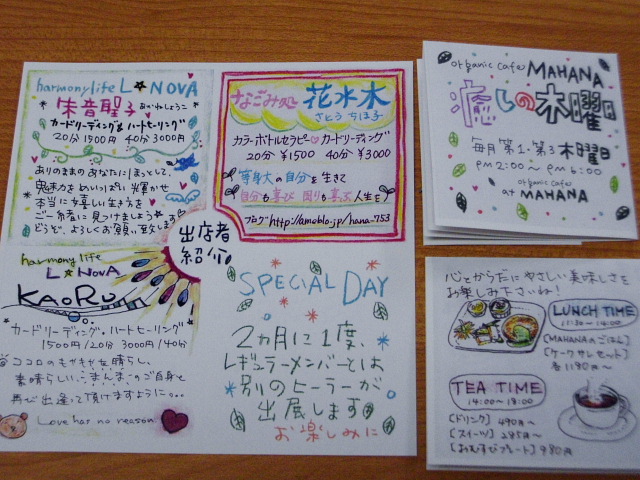 harmony life L★NOVA
朱音聖子 あかねしょうこ
カードリーディング&ハートヒーリング
20分1500円 40分3000円
ありのままのあなたにほっとして、
魅力をめいっぱい輝かせ
本当に喜しい生き方を
ご一緒に見つけましょう
どうぞ、よろしくお願い致します
なごみ処 花水木
さとう ちほ子
カラーボトルセラピー♡カードリーディング
20分 ¥1500 40分 ¥3000
等身大の自分を生きて
自分も喜び 周りも喜ぶ人生を
ブログ http://ameblo.jp/hana-753
出店者
紹介
harmony life
L★NovA
KAORU
カードリーディング・ハートヒーリング
1500円/20分 3000円/40分
ココロのもやもやを晴らし、
素晴らしい…まんま…のご自身と
再び出逢って頂けますように。。。
Love has no reason
SPECIAL DAY
2ヵ月に1度、
レギュラーメンバーとは
別のヒーラーが
出展します
お楽しみに
organic cafe MAHANA
癒しの木曜
毎月第1・第3木曜日
PM2:00～PM6:00
organic cafe
at MAHANA
心とからだにやさしい美味しさを
お楽しみ下さいね!
LUNCH TIME
11:30～14:00
[MAHANAのごはん]
[ケークサレセット]
各1180円～
TEA TIME
14:00～18:00
[ドリンク] 490円～
[スイーツ] 285円～
[おむすびプレート] 980円